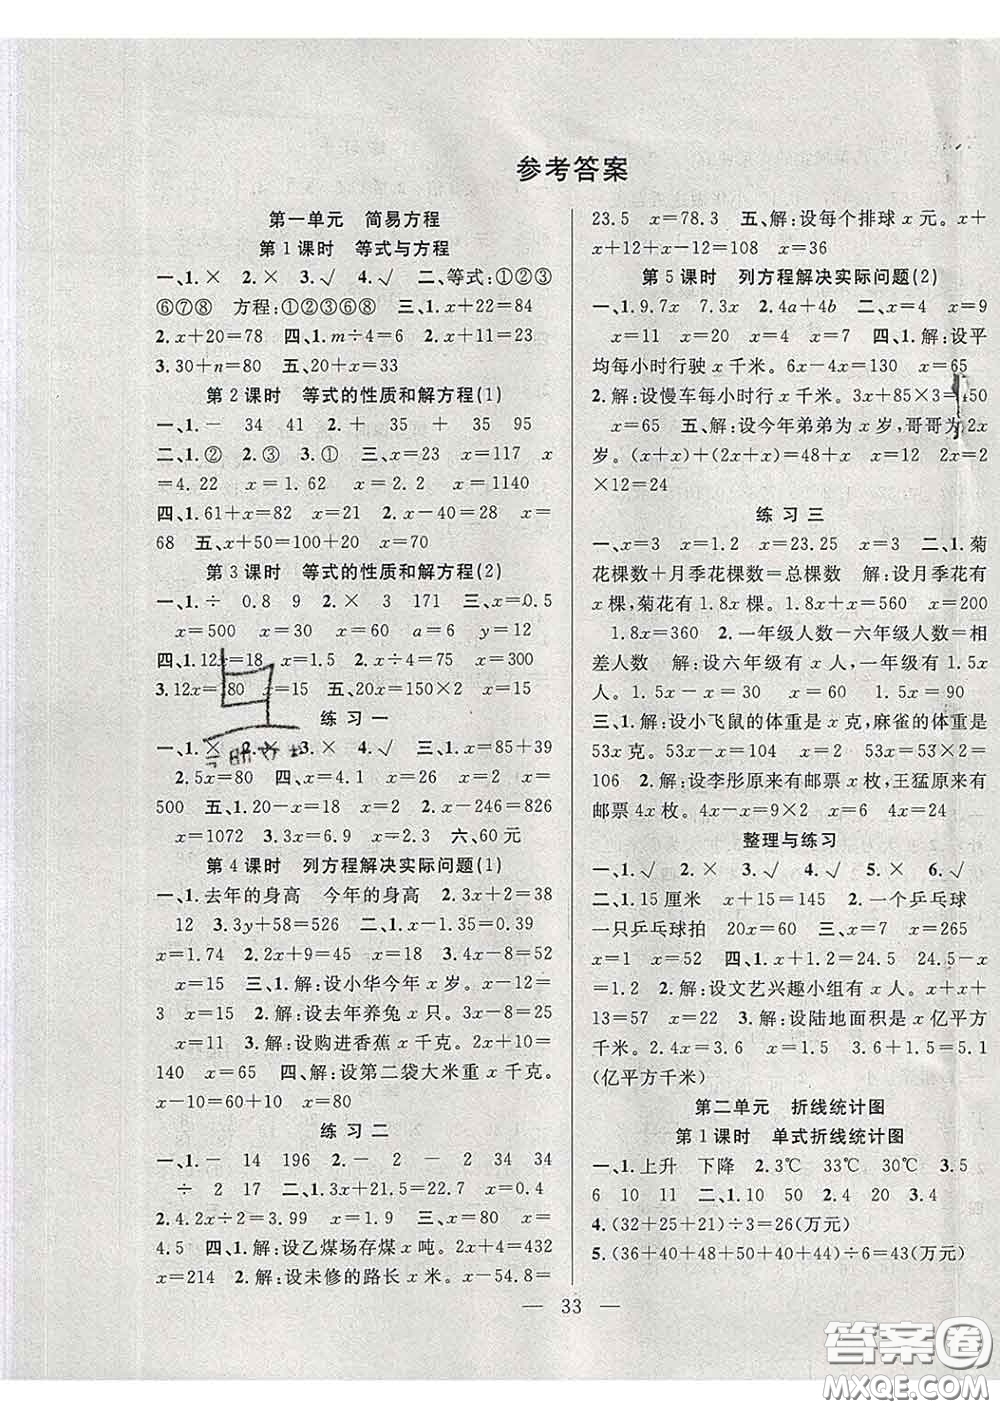 参考答案
第一单元　简易方程
第1课时　等式与方程
一、1.×　2.×　3.√　4.√　二、等式:①②③
⑥⑦⑧　方程:①②③⑥⑧　三、1.x+22=84
2.x+20=78　四、1.m÷4=6　2.x+11=23
3.30+n=80　五、20+x=33
第2课时　等式的性质和解方程(1)
一、1.-　34　41　2.+　35　35　95
二、1.②　2.③　3.①　三、x=23　x=117　x
=4.22　x=1.62　x=2.2　x=1140
四、1.61+x=82　x=21　2.x-40=28　x=
68　五、x+50=100+20　x=70
第3课时　等式的性质和解方程(2)
一、1.÷　0.8　9　2.×　3　171　三、x=0.5
x=500　x=30　x=60　a=6　y=12
四、1.12x=18　x=1.5　2.x÷4=75　x=300
3.12x=180　x=15　五、20x=150×2　x=15
练习一
一、1.×　2.×　3.×　4.√　三、1.x=85+39
2.5x=80　四、x=4.1　x=26　x=25　x=
500　五、1.20-x=18　x=2　2.x-246=826
x=1072　3.3x=6.9　x=2.3　六、60元
第4课时　列方程解决实际问题(1)
一、1.去年的身高　今年的身高　2.3x+2=38
12　3.3y+58=526　二、1.x-1.35=0.39
x=1.74　2.2x+9=45　x=18　3.3x-8=52
x=20　4.3x+7=52　x=15　5.4x-8=52
x=15　三、1.解:设小华今年x岁。x-12=
3　x=15　2.解:设去年养兔x只。3x-8=25
x=11　3.解:设购进香蕉x千克。2x+10=
140　x=65　四、解:设第二袋大米重x千克。
x-10=60+10　x=80
练习二
一、1.-　14　196　2.-　2　-　2　34　34
÷　2　17　二、1.3x+21.5=22.7　x=0.4
2.4.2x÷2=3.99　x=1.9　三、x=80　x=
4.5　四、1.解:设乙煤场存煤x吨。2x+4=432
x=214　2.解:设未修的路长x米。x-54.8=
23.5　x=78.3　五、解:设每个排球x元。x+
x+12+x-12=108　x=36
第5课时　列方程解决实际问题(2)
一、1.9.7x　7.3x　2.4a+4b　二、x=4　x=9
x=11　x=20　x=4　x=7　四、1.解:设平
均每小时行驶x千米。6x-4x=130　x=65
2.解:设慢车每小时行x千米。3x+85×3=450
x=65　五、解:设今年弟弟为x岁,哥哥为2x
岁。(x+x)+(2x+x)=48+x　x=12　2x=2
×12=24
练习三
一、x=3　x=1.2　x=23.25　x=3　二、1.菊
花棵数+月季花棵数=总棵数　解:设月季花有
x棵,菊花有1.8x棵。1.8x+x=560　x=200
1.8x=360　2.一年级人数-六年级人数=
相差人数　解:设六年级有x人,一年级有1.5x
人。1.5x-x=30　x=60　1.5x=90
三、1.解:设小飞鼠的体重是x克,麻雀的体重是
53x克。53x-x=104　x=2　53x=53×2=
106　2.解:设李彤原来有邮票x枚,王猛原来有
邮票4x枚。4x-x=9×2　x=6　4x=24
整理与练习
一、1.√　2.×　3.√　4.√　5.×　6.√
二、1.15厘米　x+15=145　2.一个乒乓球
一只乒乓球拍　20x=60　三、x=7　x=265
x=1　x=52　四、1.x+1=2+24.5　x
=1.2　2.解:设文艺兴趣小组有x人。x+x
+13=57　x=22　3.解:设陆地面积是x亿平方
千米。2.4x+x=5.1　x=1.5　3.6+1.5=5.1
(亿平方千米)
第二单元　折线统计图
第1课时　单式折线统计图
一、1.上升　下降　2.3℃　33℃　40℃　3.5
6　10　11　二、1.10　50　2.4　20　3.40
4.(32+25+21)÷3=26(万元)
5.(36+40+48+50+40+44)÷6=43(万元)
— 33 —
答案圈
MXQE.COM